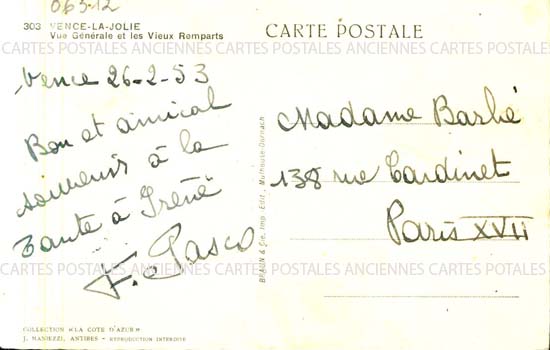 06312
303 VENCE-LA-JOLIE
Vue Générale et les Vieux Remparts
CARTE POSTALE
CARTES POSTALES ANCIENNES CARTES POSTALES ANCIENNES CARTES POSTALES ANCIENNES
Vence 26-2-53
Bon et amical
souvenir à la
Tante à Irène
F. Pasco
BRAUN & Cie, Imp.-Edit., Mulhouse-Dornach
Madame Barbé
138 rue Cardinet
Paris XVII
CARTES POSTALES ANCIENNES CARTES POSTALES ANCIENNES CARTES POSTALES ANCIENNES
COLLECTION «LA COTE D'AZUR»
J. MANIEZZI, ANTIBES - REPRODUCTION INTERDITE